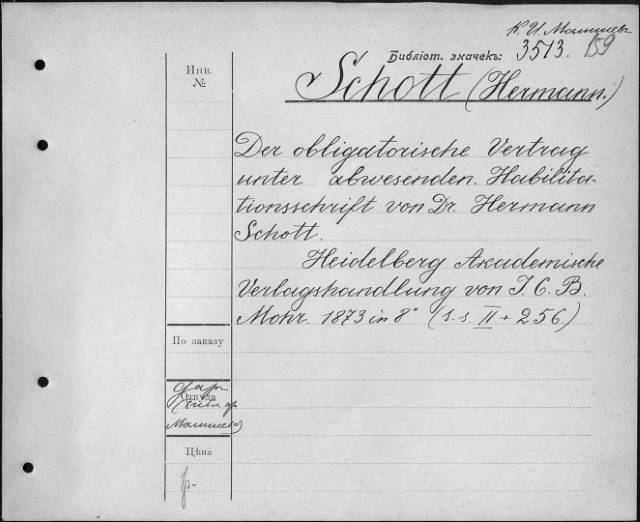 К. И. Малышев
Библіот. значекъ: 3513. 159
Инв.
№
Schott (Hermann.)
Der obligatorische Vertrag
unter abwesenden. Habilita-
tionsschrift von Dr. Hermann
Schott.
Heidelberg Akademische
Verlagshandlung von J. C. B.
Mohr. 1873 in 8° (s. s. II + 256.)
По заказу
Откуда
дар
(Библ. пр
Малышева)
Цѣна
р.